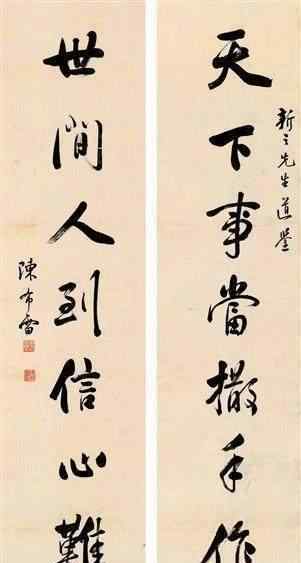 新之先生道鑒
天下事當撒手作
世間人到信心難
陳布雷